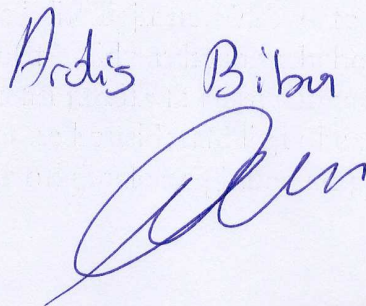 Ardis Bibu